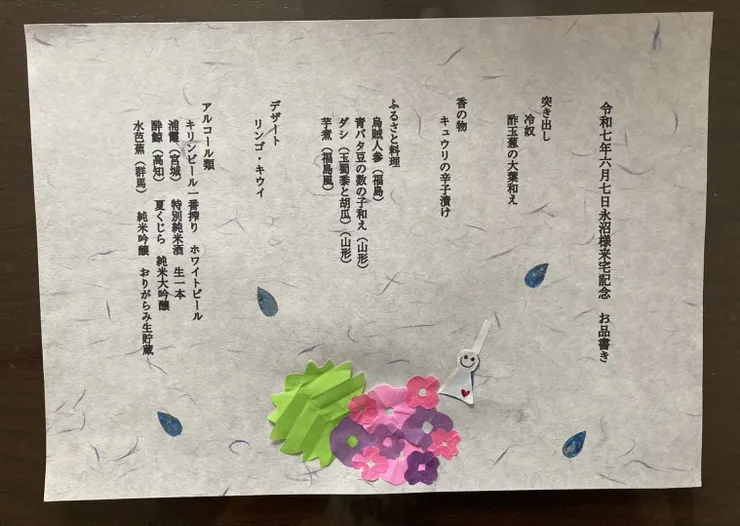 令和七年六月七日永沼様来宅記念　お品書き
突き出し
冷奴
酢玉葱の大葉和え
香の物
キュウリの辛子漬け
ふるさと料理
烏賊人参（福島）
青バタ豆の数の子和え（山形）
ダシ（玉蜀黍と胡瓜）（山形）
芋煮（福島風）
デザート
リンゴ・キウイ
アルコール類
キリンビール一番搾り　ホワイトビール
浦霞（宮城）　特別純米酒　生一本
酔鯨（高知）　夏くじら　純米大吟醸
水芭蕉（群馬）　純米吟醸　おりがらみ生貯蔵